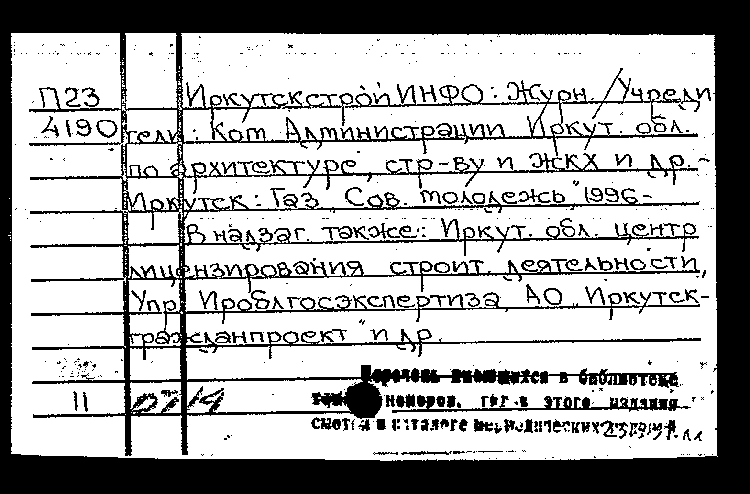 П23 Иркутскстрой ИНФО: Журн. / Учреди
4190 тели: Ком. Администрации Иркут. обл.
по архитектуре, стр-ву и ЖКХ и др. -
Иркутск: Газ. "Сов. молодежь", 1996-
В надзаг. также: Иркут. обл. центр
лицензирования строит. деятельности,
Упр. Ироблгосэкспертиза, АО "Иркутск-
гражданпроект" и др.
Перечень имеющихся в библиотеке
11 07 14 номеров, газ. этого издания
смотри в каталоге периодических